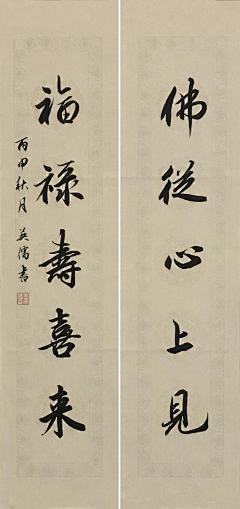 佛從心上見
福祿壽喜来
丙申秋月英儒書